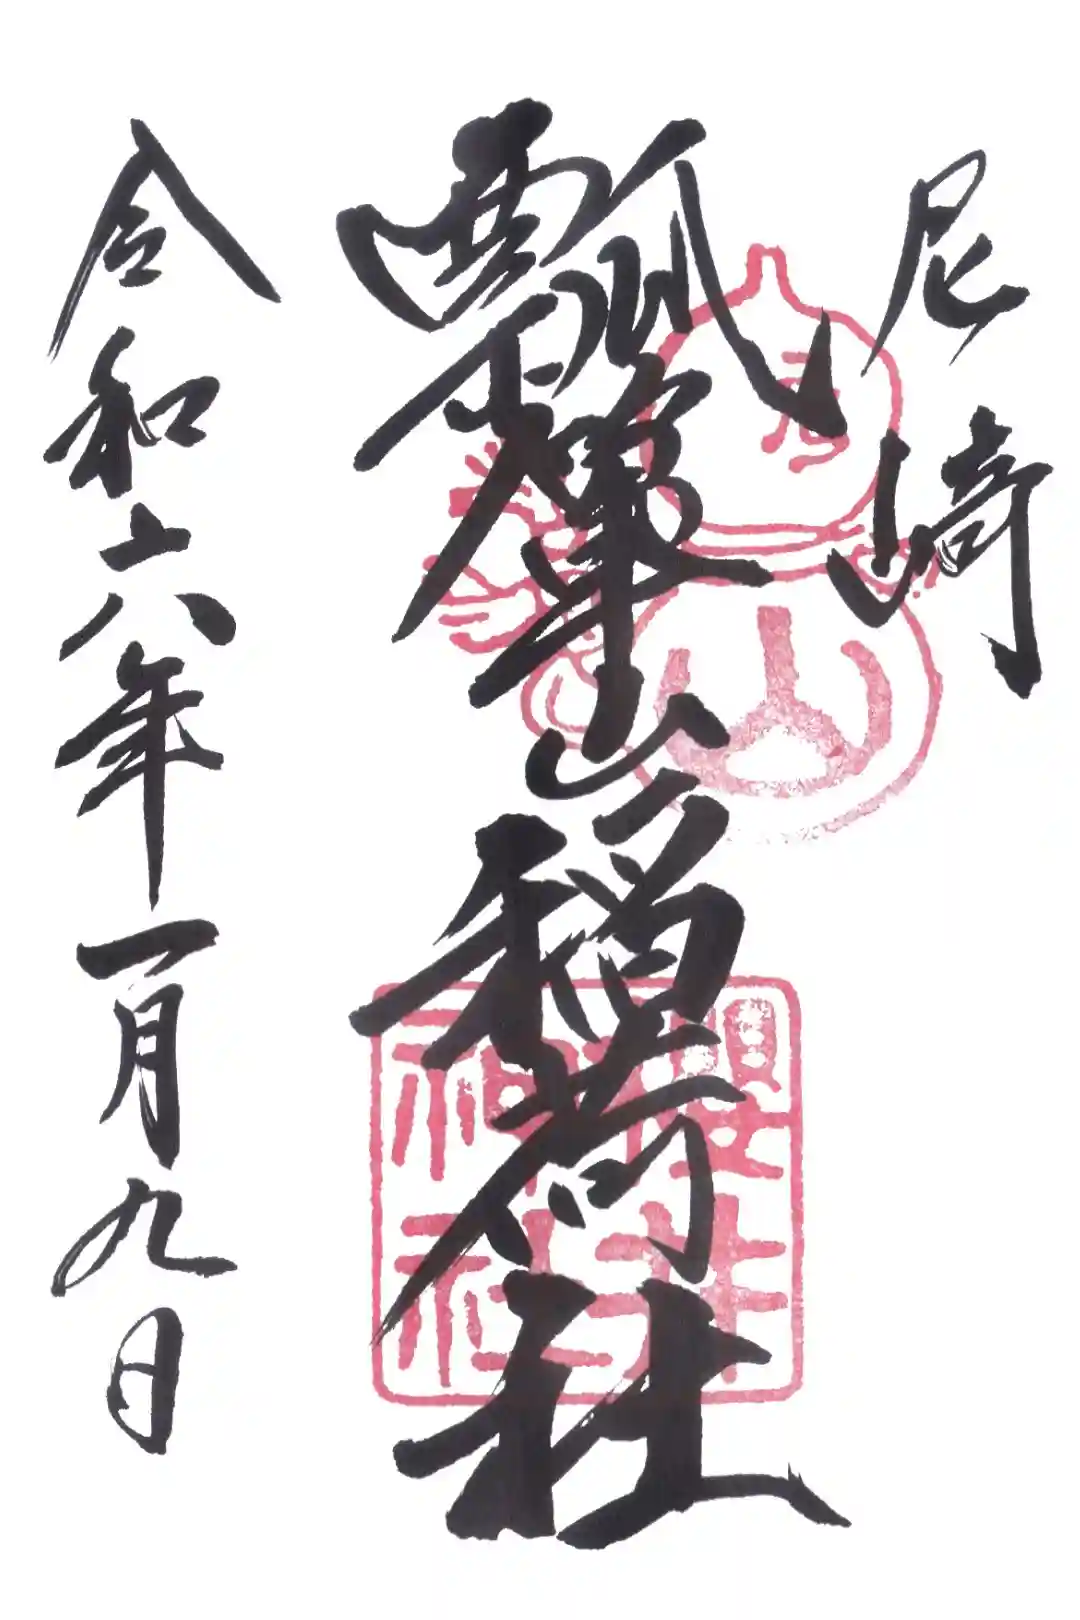 尼崎
瓢輝山稲荷社
櫻井
神社
令和六年一月九日